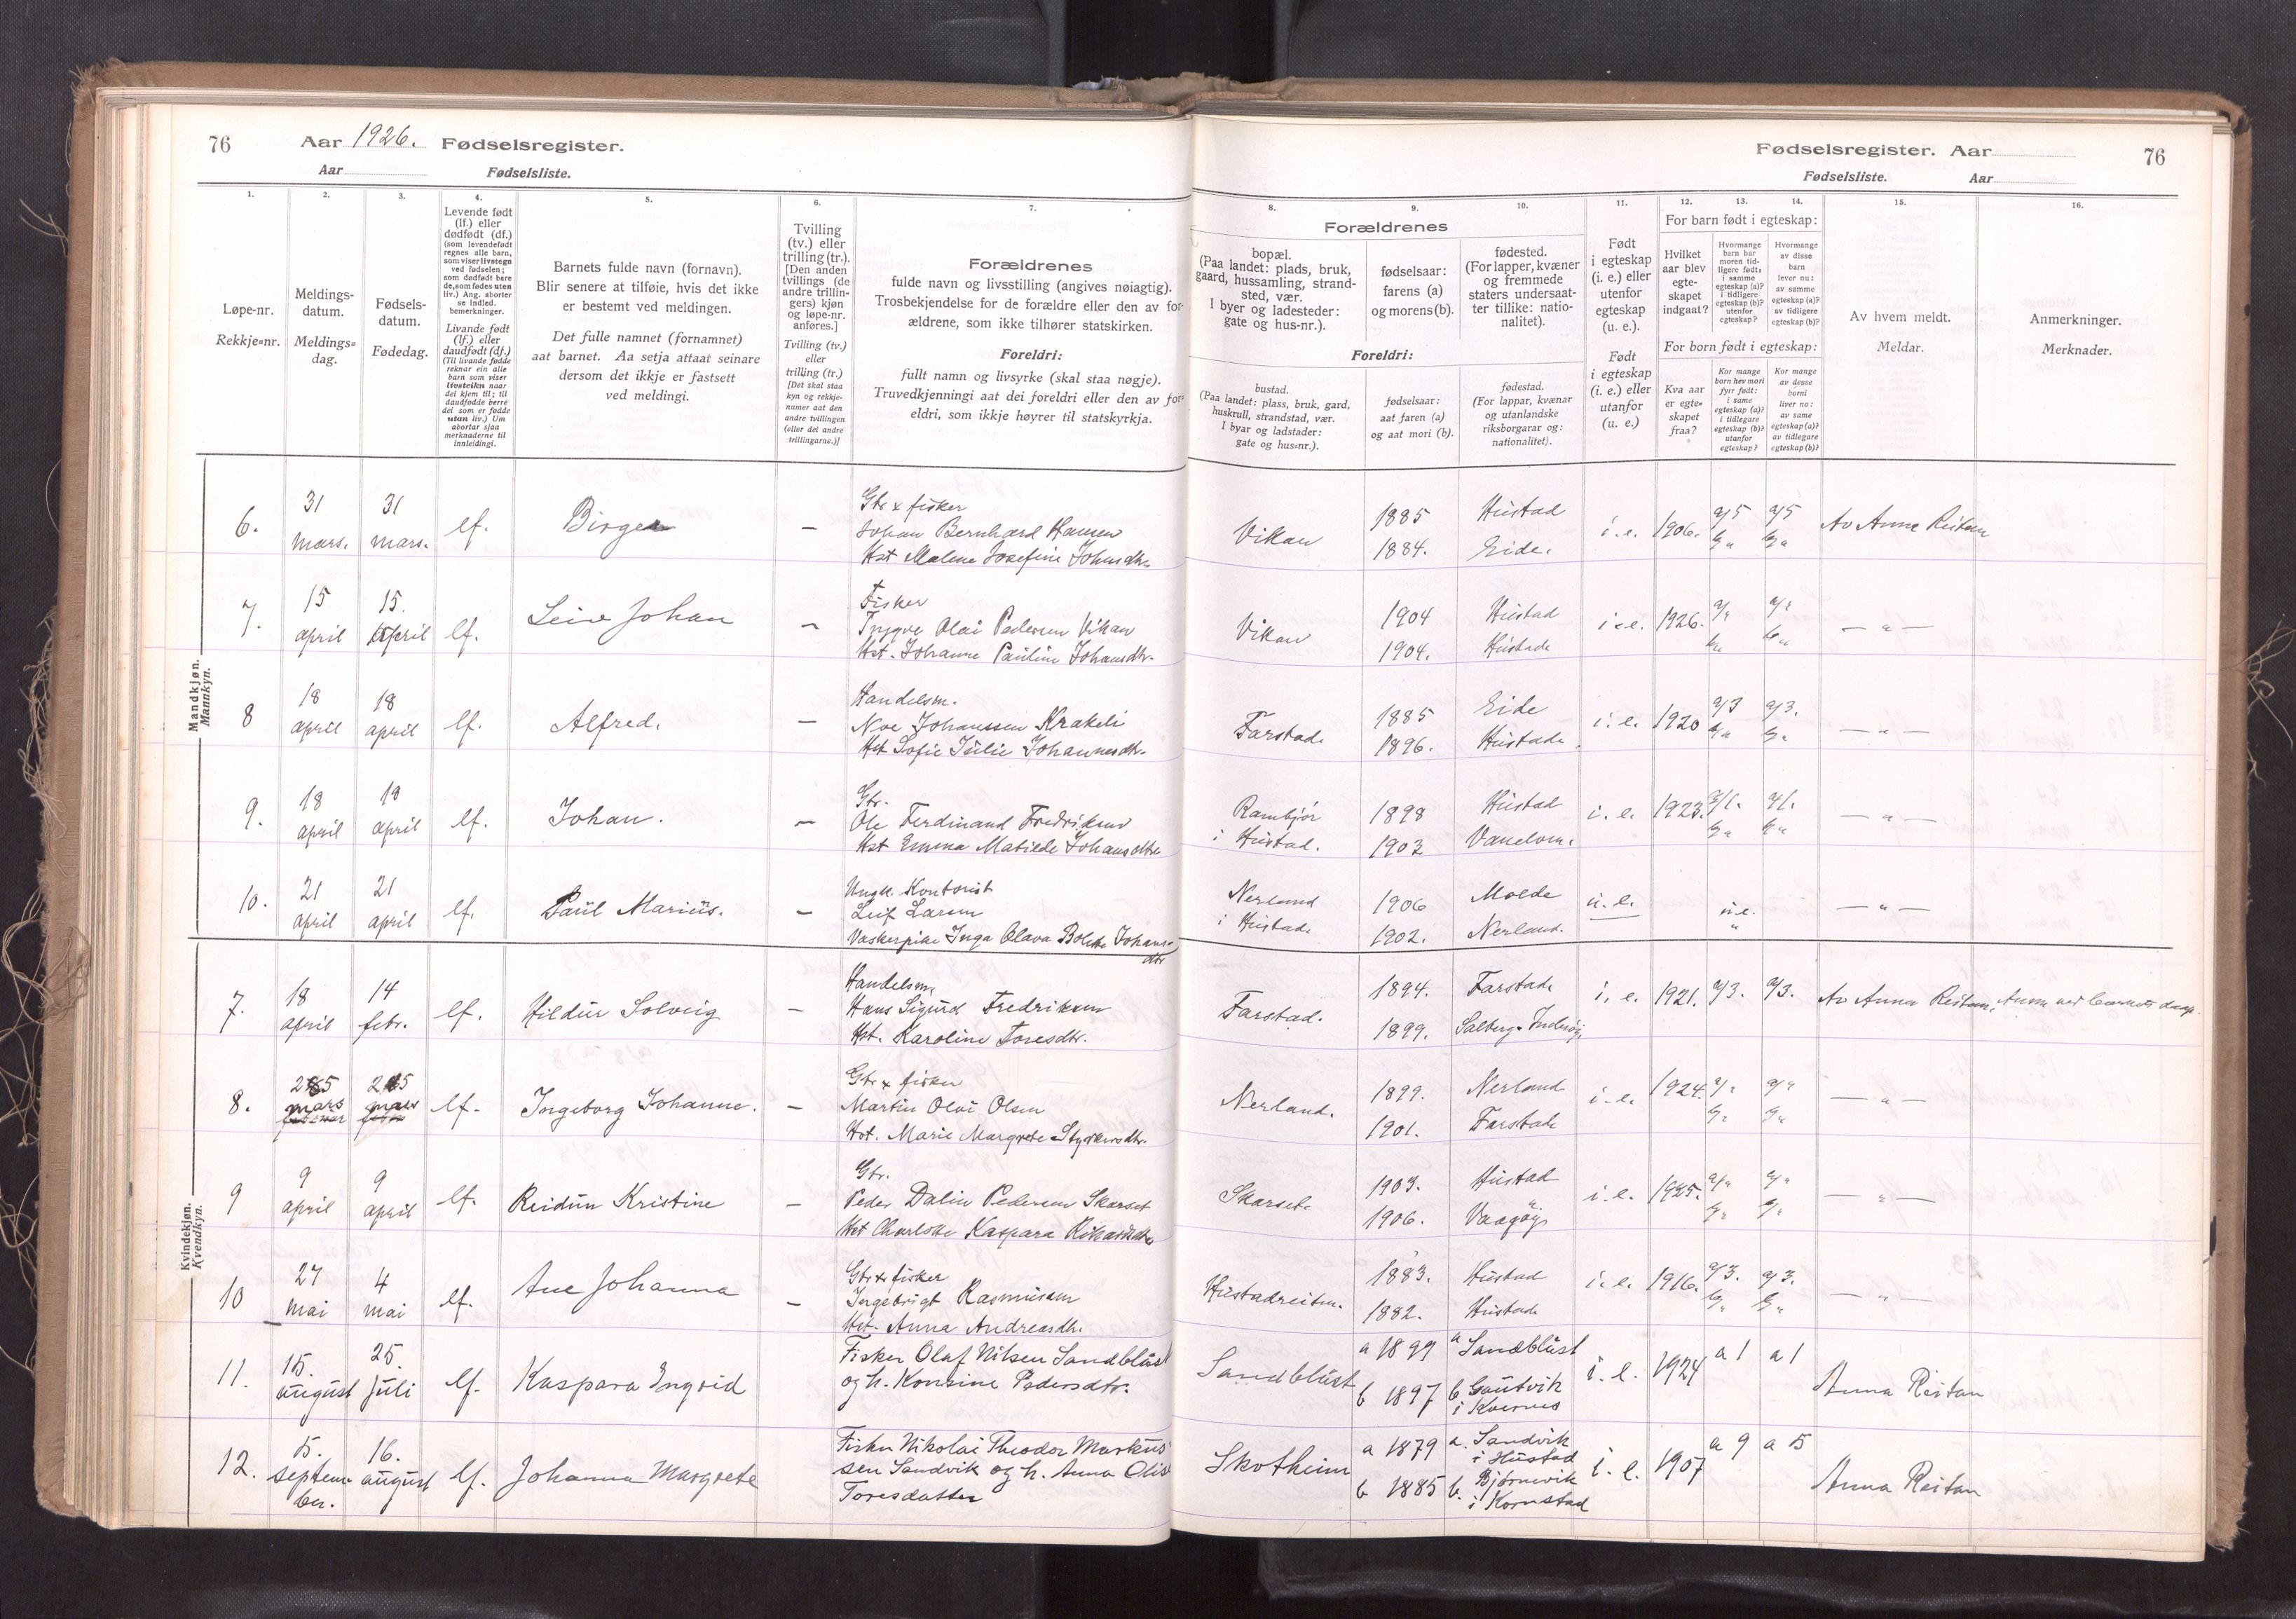 76 Aar 1926. Fødselsregister.
Aar Fødselsliste.
1. 2. 3. 4. 5. 6. 7.
Løpe-nr.
Rekkje=nr.
Meldings-
datum.
Meldings=
dag.
Fødsels-
datum.
Fødedag.
Levende født
(lf.) eller
dødfødt (df.)
(som levendefødt
regnes alle barn,
som viser livstegn
ved fødselen;
som dødfødt bare
de, som fødes uten
liv.) Ang. aborter
se indled.
bemerkninger.
Livande født
(lf.) eller
daudfødt (df.)
(Til livande fødde
reknar ein alle
barn som viser
livsteikn naar
dei kjem til; til
daudfødde berre
dei som er fødde
utan liv.) Um
abortar sjaa
merknaderne til
innleidingi.
Barnets fulde navn (fornavn).
Blir senere at tilføie, hvis det ikke
er bestemt ved meldingen.
Det fulle namnet (fornamnet)
aat barnet. Aa setja attaat seinare
dersom det ikkje er fastsett
ved meldingi.
Tvilling
(tv.) eller
trilling (tr.).
[Den anden
tvillings (de
andre trillin-
gers) kjøn
og løpe-nr.
anføres.]
Tvilling (tv.)
eller
trilling (tr.)
[Det skal staa
kyn og rekkje-
numer aat den
andre tvillingen
(eller dei andre
trillingarne.)]
Forældrenes
fulde navn og livsstilling (angives nøiagtig).
Trosbekjendelse for de forældre eller den av for-
ældrene, som ikke tilhører statskirken.
Foreldri:
fullt namn og livsyrke (skal staa nøgje).
Truvedkjenningi aat dei foreldri eller den av for=
eldri, som ikkje høyrer til statskyrkja.
Fødselsregister. Aar 76
Fødselsliste. Aar
8. 9. 10. 11. 12. 13. 14. 15. 16.
Forældrenes
bopæl.
(Paa landet: plads, bruk,
gaard, hussamling, strand-
sted, vær.
I byer og ladesteder:
gate og hus-nr.).
fødselsaar:
farens (a)
og morens (b).
fødested.
(For lapper, kvæner
og fremmede
staters undersaat-
ter tillike: natio-
nalitet).
Foreldri:
bustad.
(Paa landet: plass, bruk, gard,
huskrull, strandstad, vær.
I byar og ladstader:
gate og hus=nr.).
fødselsaar:
aat faren (a)
og aat mori (b).
fødestad.
(For lappar, kvænar
og utanlandske
riksborgarar og:
nationalitet).
Født
i egteskap
(i. e.) eller
utenfor
egteskap
(u. e.).
Født
i egteskap
(i. e.) eller
utanfor
(u. e.)
For barn født i egteskap:
Hvilket
aar blev
egte-
skapet
indgaat?
Hvormange
barn har
moren tid-
ligere født:
i samme
egteskap (a)?
i tidligere
egteskap (b)?
utenfor
egteskap?
Hvormange
av disse
barn
lever nu:
av samme
egteskap (a)?
av tidligere
egteskap (b)?
For born født i egteskap:
Kva aar
er egte=
skapet
fraa?
Kor mange
born hev mori
fyrr født:
i same
egteskap (a)?
i tidlegare
egteskap (b)?
utanfor
egteskap?
Kor mange
av desse
borni
liver no:
av same
egteskap (a)?
av tidlegare
egteskap (b)?
Av hvem meldt.
Meldar.
Anmerkninger.
Merknader.
Mandkjøn.
Mannkyn.
6. 31 mars. 31 mars. lf. Birger —
Gbr & fisker
Johan Bernhard Hansen
Hst Malene Josefine Johnsdtr.
Vikan 1885 Hustad i. e. 1906. a/5 a/5 Av Anna Reitan
1884. Eide. b/" b/"
7. 15 april 15. april lf. Leiv Johan —
Fisker
Trygve Olai Pedersen Vikan
Hst. Johanne Pauline Johansdtr.
Vikan 1904 Hustad i. e. 1926. a/" a/" — " —
1904. Hustad b/" b/"
8 18 april 18 april lf. Alfred. —
Handelsm.
Noe Johanssen Krakeli
Hst Sofie Julie Johannesdtr.
Farstad. 1885 Eide i. e. 1920 a/3 a/3. — " —
1896. Hustad. b/" b/"
9. 18 april 18 april lf. Johan. —
Gbr.
Ole Ferdinand Fredriksen
Hst Emma Matilde Johansdtr
Rambjør i Hustad. 1898 Hustad i. e. 1923. a/1. a/1. — " —
1903 b/" b/"
10. 21 april 21 april lf. Paul Marius. —
Ungk. Kontorist
Leif Larsen
Vaskerpike Inga Olava Bolette Johans-
dtr
Nerland i Hustad. 1906 Molde u. e. u.e. — " —
1902. Nerland. "
Kvindekjøn.
Kvendkyn.
7. 18 april 14 febr. lf. Hildur Solveig —
Handelsm.
Hans Sigurd Fredriksen
Hst. Karoline Toresdtr.
Farstad. 1894. Farstad. i. e. 1921. a/3. a/3. Av Anna Reitan.
1899. Salberg. Inderøy.
8. 25 mars 25 mars lf. Ingeborg Johanne. —
Gbr & fisker
Martin Olai Olsen
Hst. Marie Margrete Styrkersdtr.
Nerland. 1899. Nerland i. e. 1924. a/" a/" — " —
1901. Farstad b/" b/"
9 9 april 9 april lf. Reidun Kristine —
Gbr.
Peder Dalin Pedersen Skarset
Hst Charlotte Kaspara Rikardsdtr
Skarset. 1903. Hustad i. e. 1925. a/" a/" — " —
1906. Vaagøy b/" b/"
10 27 mai 4 mai lf. Ane Johanna —
Gbr & fisker
Ingebrigt Rasmussen
Hst. Anna Andreasdtr.
Hustadreiten. 1883. Hustad i. e. 1916. a/3. a/3. — " —
1882. Hustad b/" b/"
11. 15. august 25. juli lf. Kaspara Ingrid
Fisker Olaf Nilsen Sandblust
og h. Konsine Pedersdtr.
Sandblust a 1899 a Sandblust i. e. 1924 a 1 a 1 Anna Reitan
b 1897 b Gautvik
i Kvernes
12. 15. septem-
ber. 16. august lf. Johanna Margrete
Fisker Nikolai Theodor Markus
sen Sandvik og h. Anna Olise
Toresdatter
Skotheim a 1879 a. Sandvik
i Hustad i. e. 1907 a 9 a 5 Anna Reitan
b 1885 b. Bjørnevik
i Kornstad